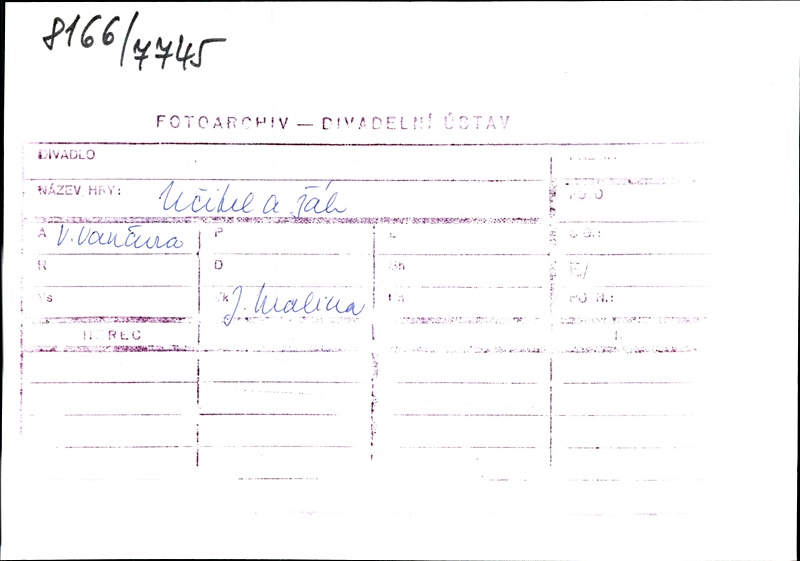 8166/7745
FOTOARCHIV — DIVADELNÍ ÚSTAV
DIVADLO
NÁZEV HRY: Učitel a žák
A V. Vančura P
R D
Vs Vk J. Malina
HEREC